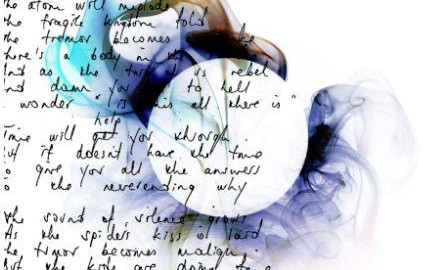 he atom will implode
he fragile kingdom fold
he tremor becomes ke
here's a body in the
And as the us rebel
nd damn you to hell
wonder "is this all there is"
help
Time will get you through
if it doesn't have the time
o give you all the answers
o the neverending why
the sound of silence grows
As the spiders kiss is laid
he tumor becomes malign
but the kids are doing